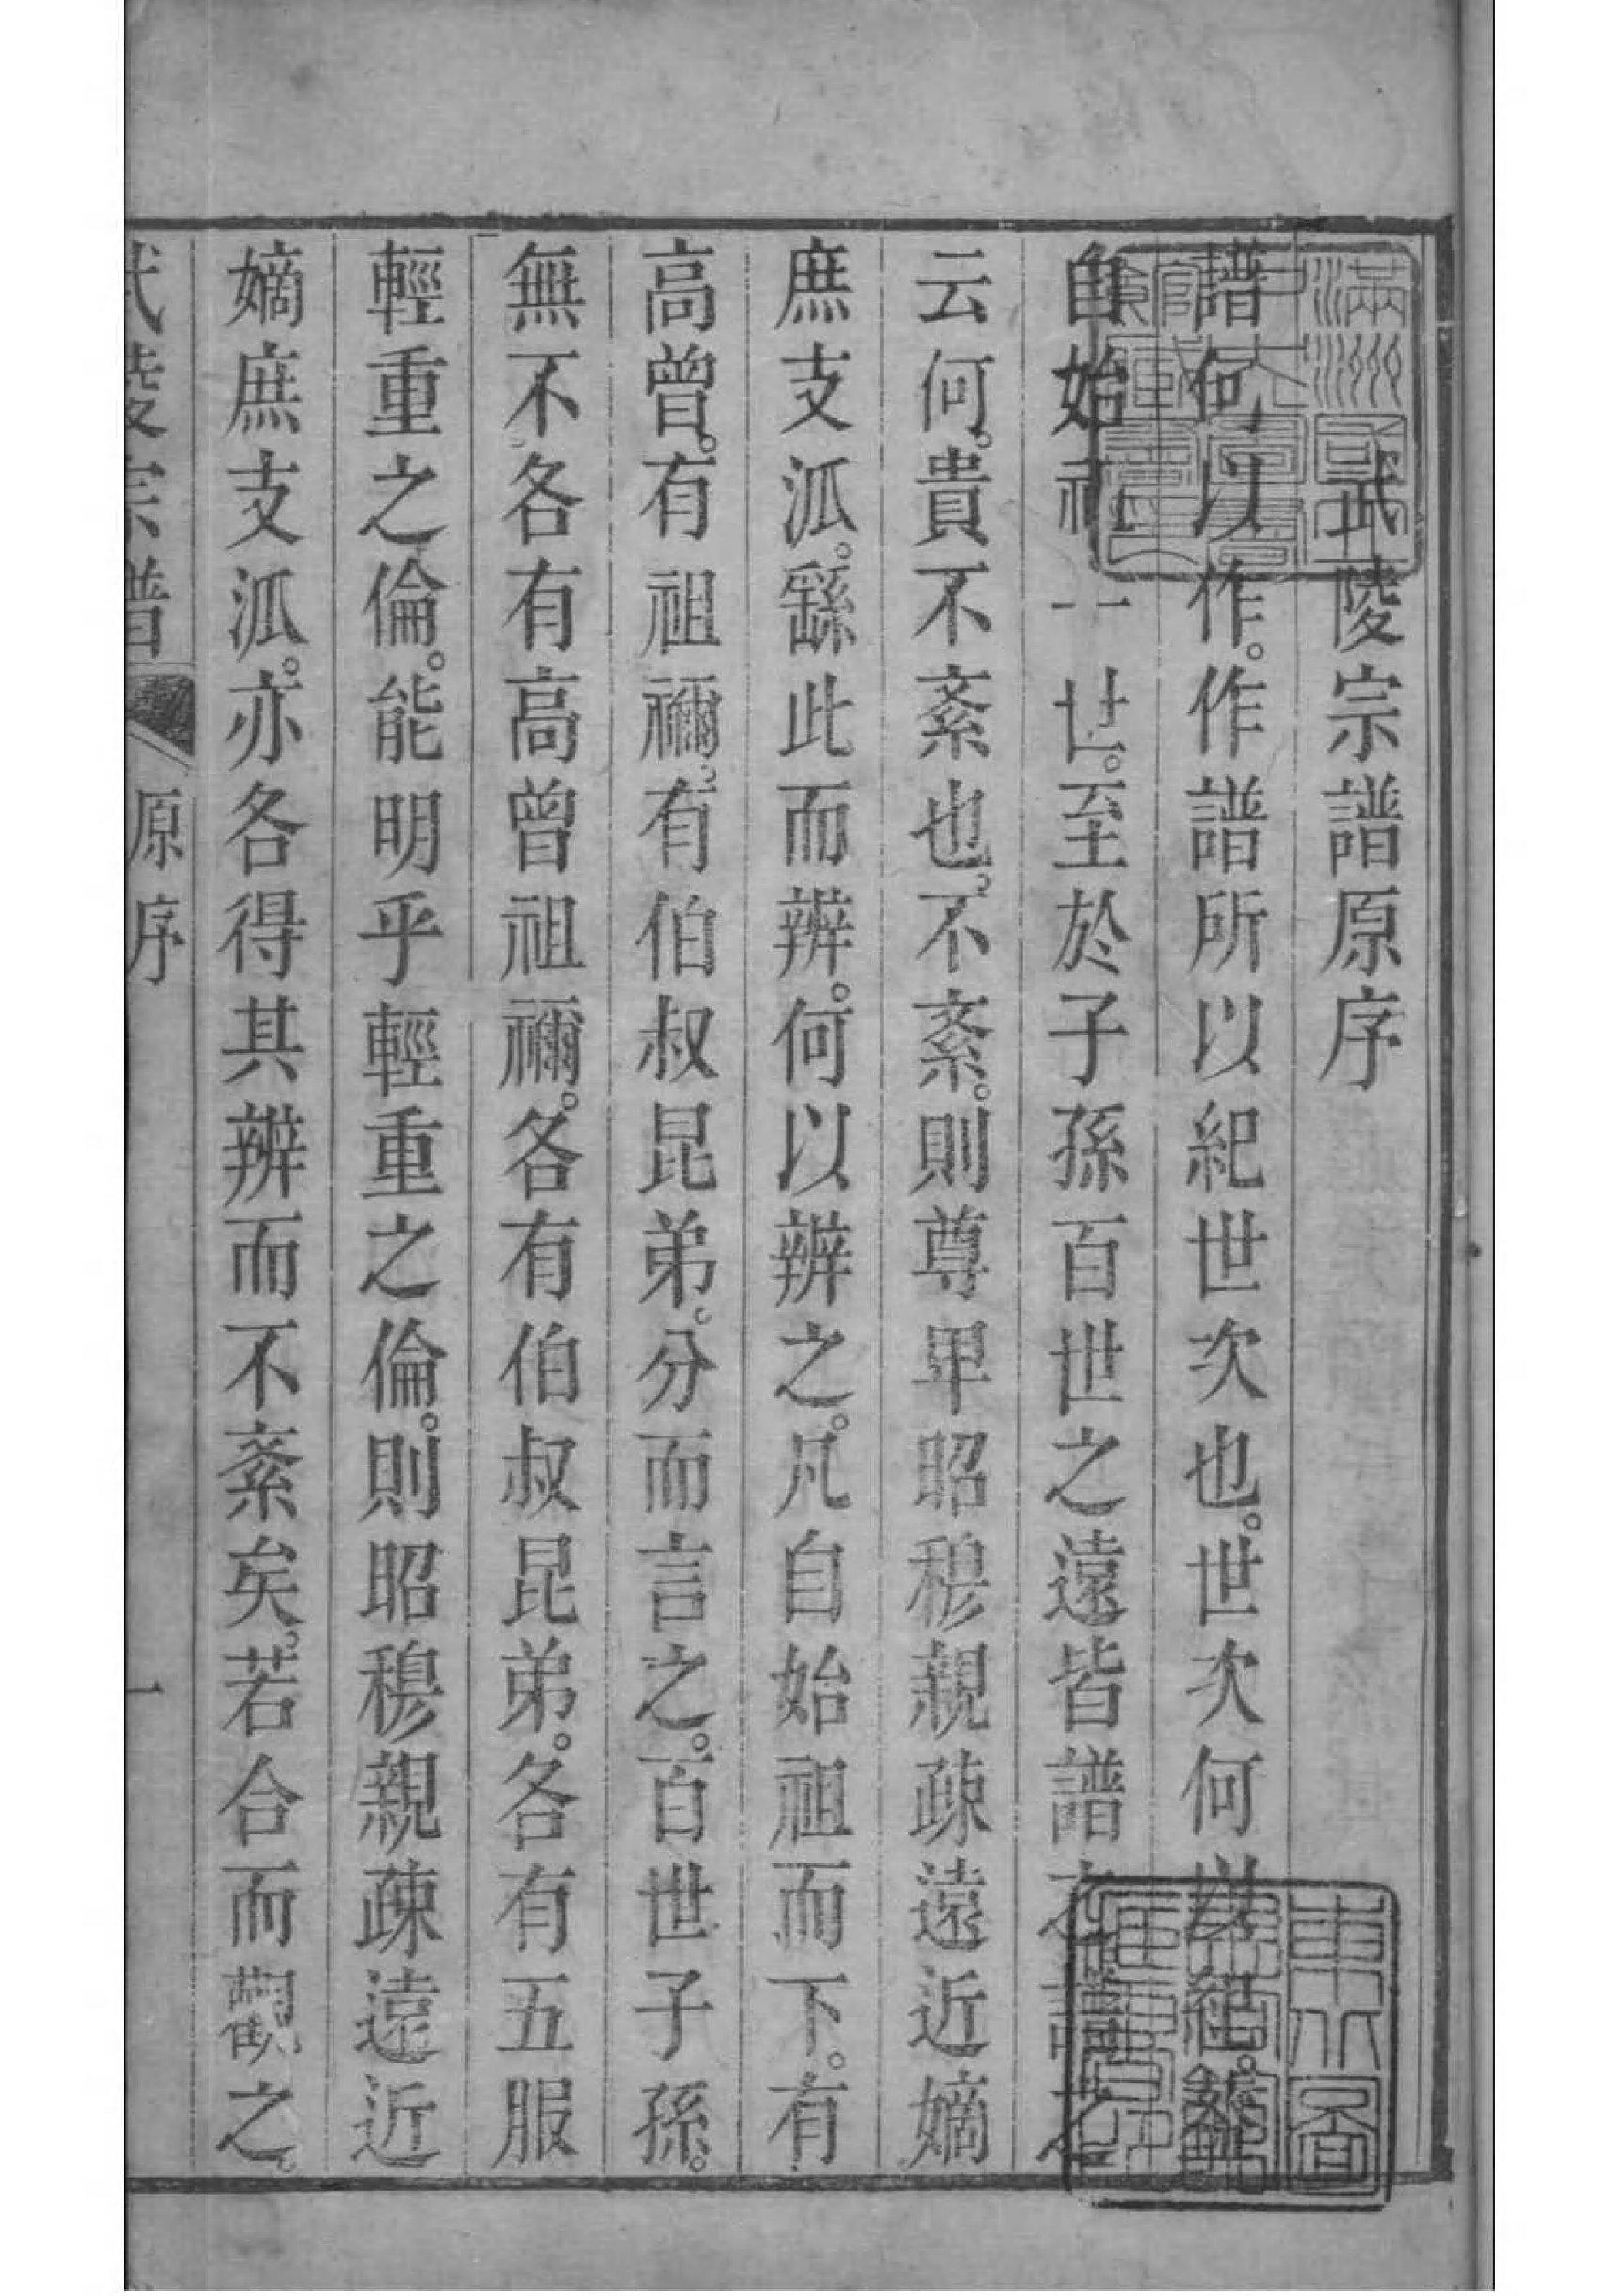 武陵宗譜原序
譜何以作。作譜所以紀世次也。世次何以紀。繇
自始祖一世。至於子孫百世之遠皆譜之。譜之
云何。貴不紊也。不紊。則尊卑昭穆親疎遠近嫡
庶支泒。繇此而辨。何以辨之。凡自始祖而下。有
高曾。有祖禰。有伯叔昆弟。分而言之。百世子孫。
無不各有高曾祖禰。各有伯叔昆弟。各有五服
輕重之倫。能明乎輕重之倫。則昭穆親疎遠近
嫡庶支泒。亦各得其辨而不紊矣。若合而觀之。
武陵宗譜
原序
一